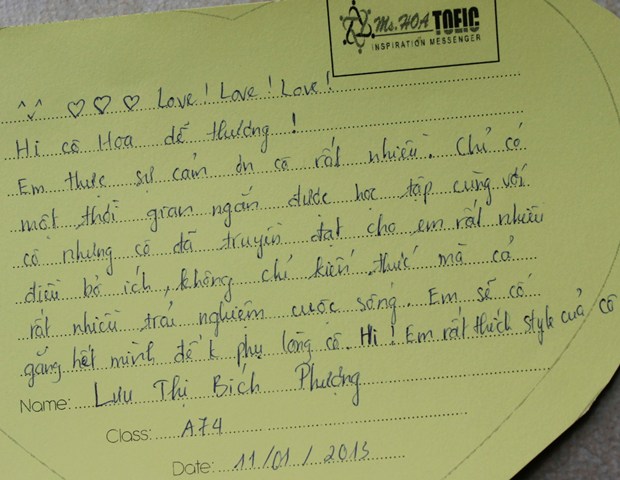 Ms. HOA TOEIC
INSPIRATION MESSENGER
^^ ♡ ♡ ♡ Love! Love! Love!
Hi cô Hoa dễ thương!
Em thực sự cảm ơn cô rất nhiều. Chỉ có
một thời gian ngắn được học tập cùng với
cô nhưng cô đã truyền đạt cho em rất nhiều
điều bổ ích, không chỉ kiến thức mà cả
rất nhiều trải nghiệm cuộc sống. Em sẽ cố
gắng hết mình để k phụ lòng cô. Hi! Em rất thích style của cô
Name: Lưu Thị Bích Phượng
Class: A74
Date: 11/01/2013